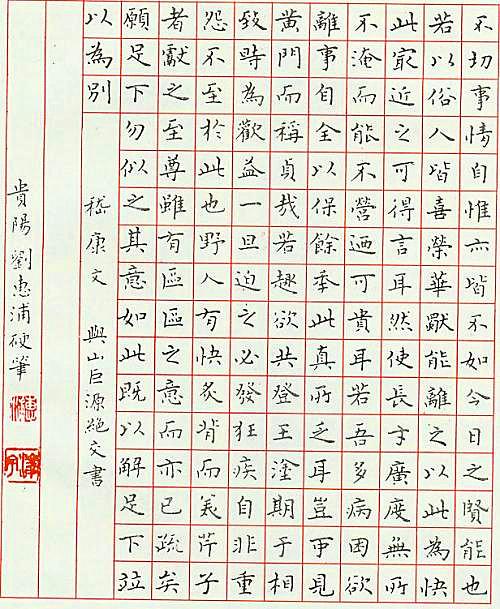 不切事情自惟亦皆不如今日之賢能也
若以俗人皆喜榮華獨能離之以此為快
此冣近之可得言耳然使長才廣度無所
不淹而能不營迺可貴耳若吾多病困欲
離事自全以保餘年此真所乏耳豈可見
黃門而稱貞哉若趣欲共登王塗期于相
致時為歡益一旦迫之必發狂疾自非重
怨不至於此也野人有快炙背而美芹子
者獻之至尊雖有區區之意而亦已疏矣
願足下勿似之其意如此既以解足下竝
以為別 嵇康文 與山巨源絕文書
貴陽劉惠浦硬筆